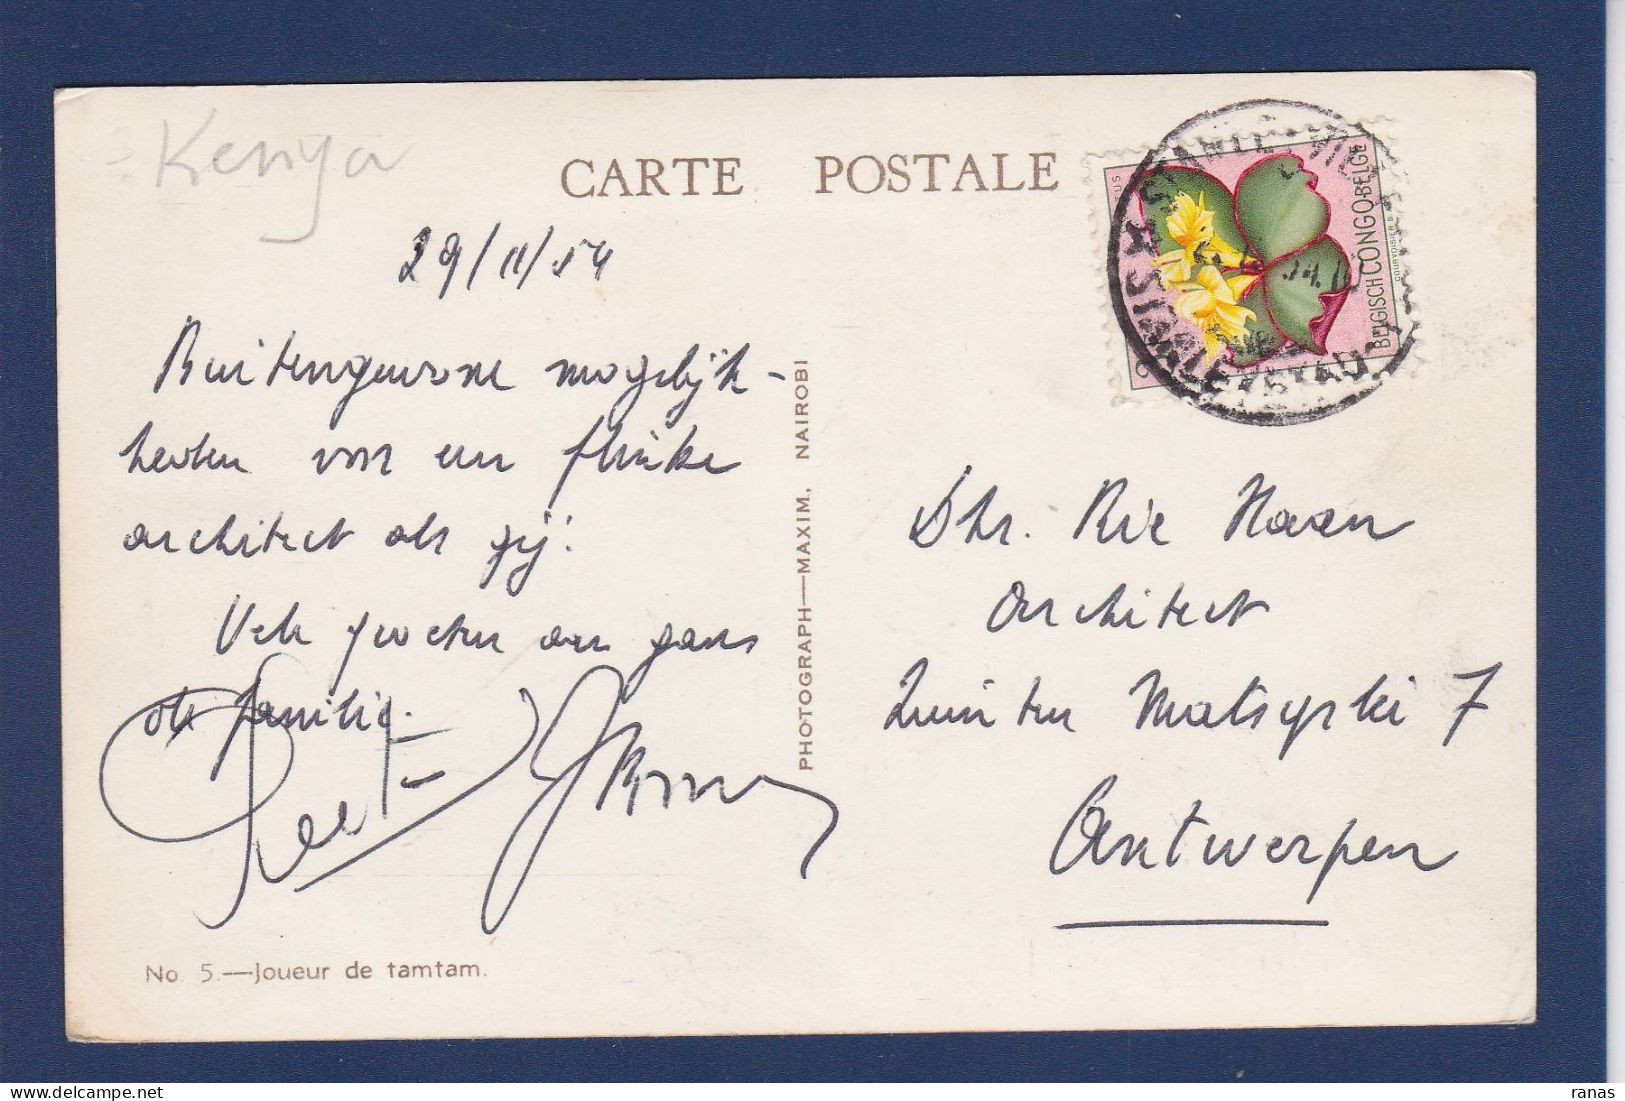 Kenya
CARTE POSTALE
29/11/54
Buitengewone mogelijk-
heden voor een flinke
architect als gij.
Vele groeten aan gans
de familie.
No. 5.—Joueur de tamtam.
PHOTOGRAPH—MAXIM, NAIROBI
BELGISCH CONGO BELGE
COURVOISIER S.A.
STANLEYVILLE
STANLEYSTAD
Dhr. Rie Haan
Architect
Quinten Matsyslei 7
Antwerpen
ranas